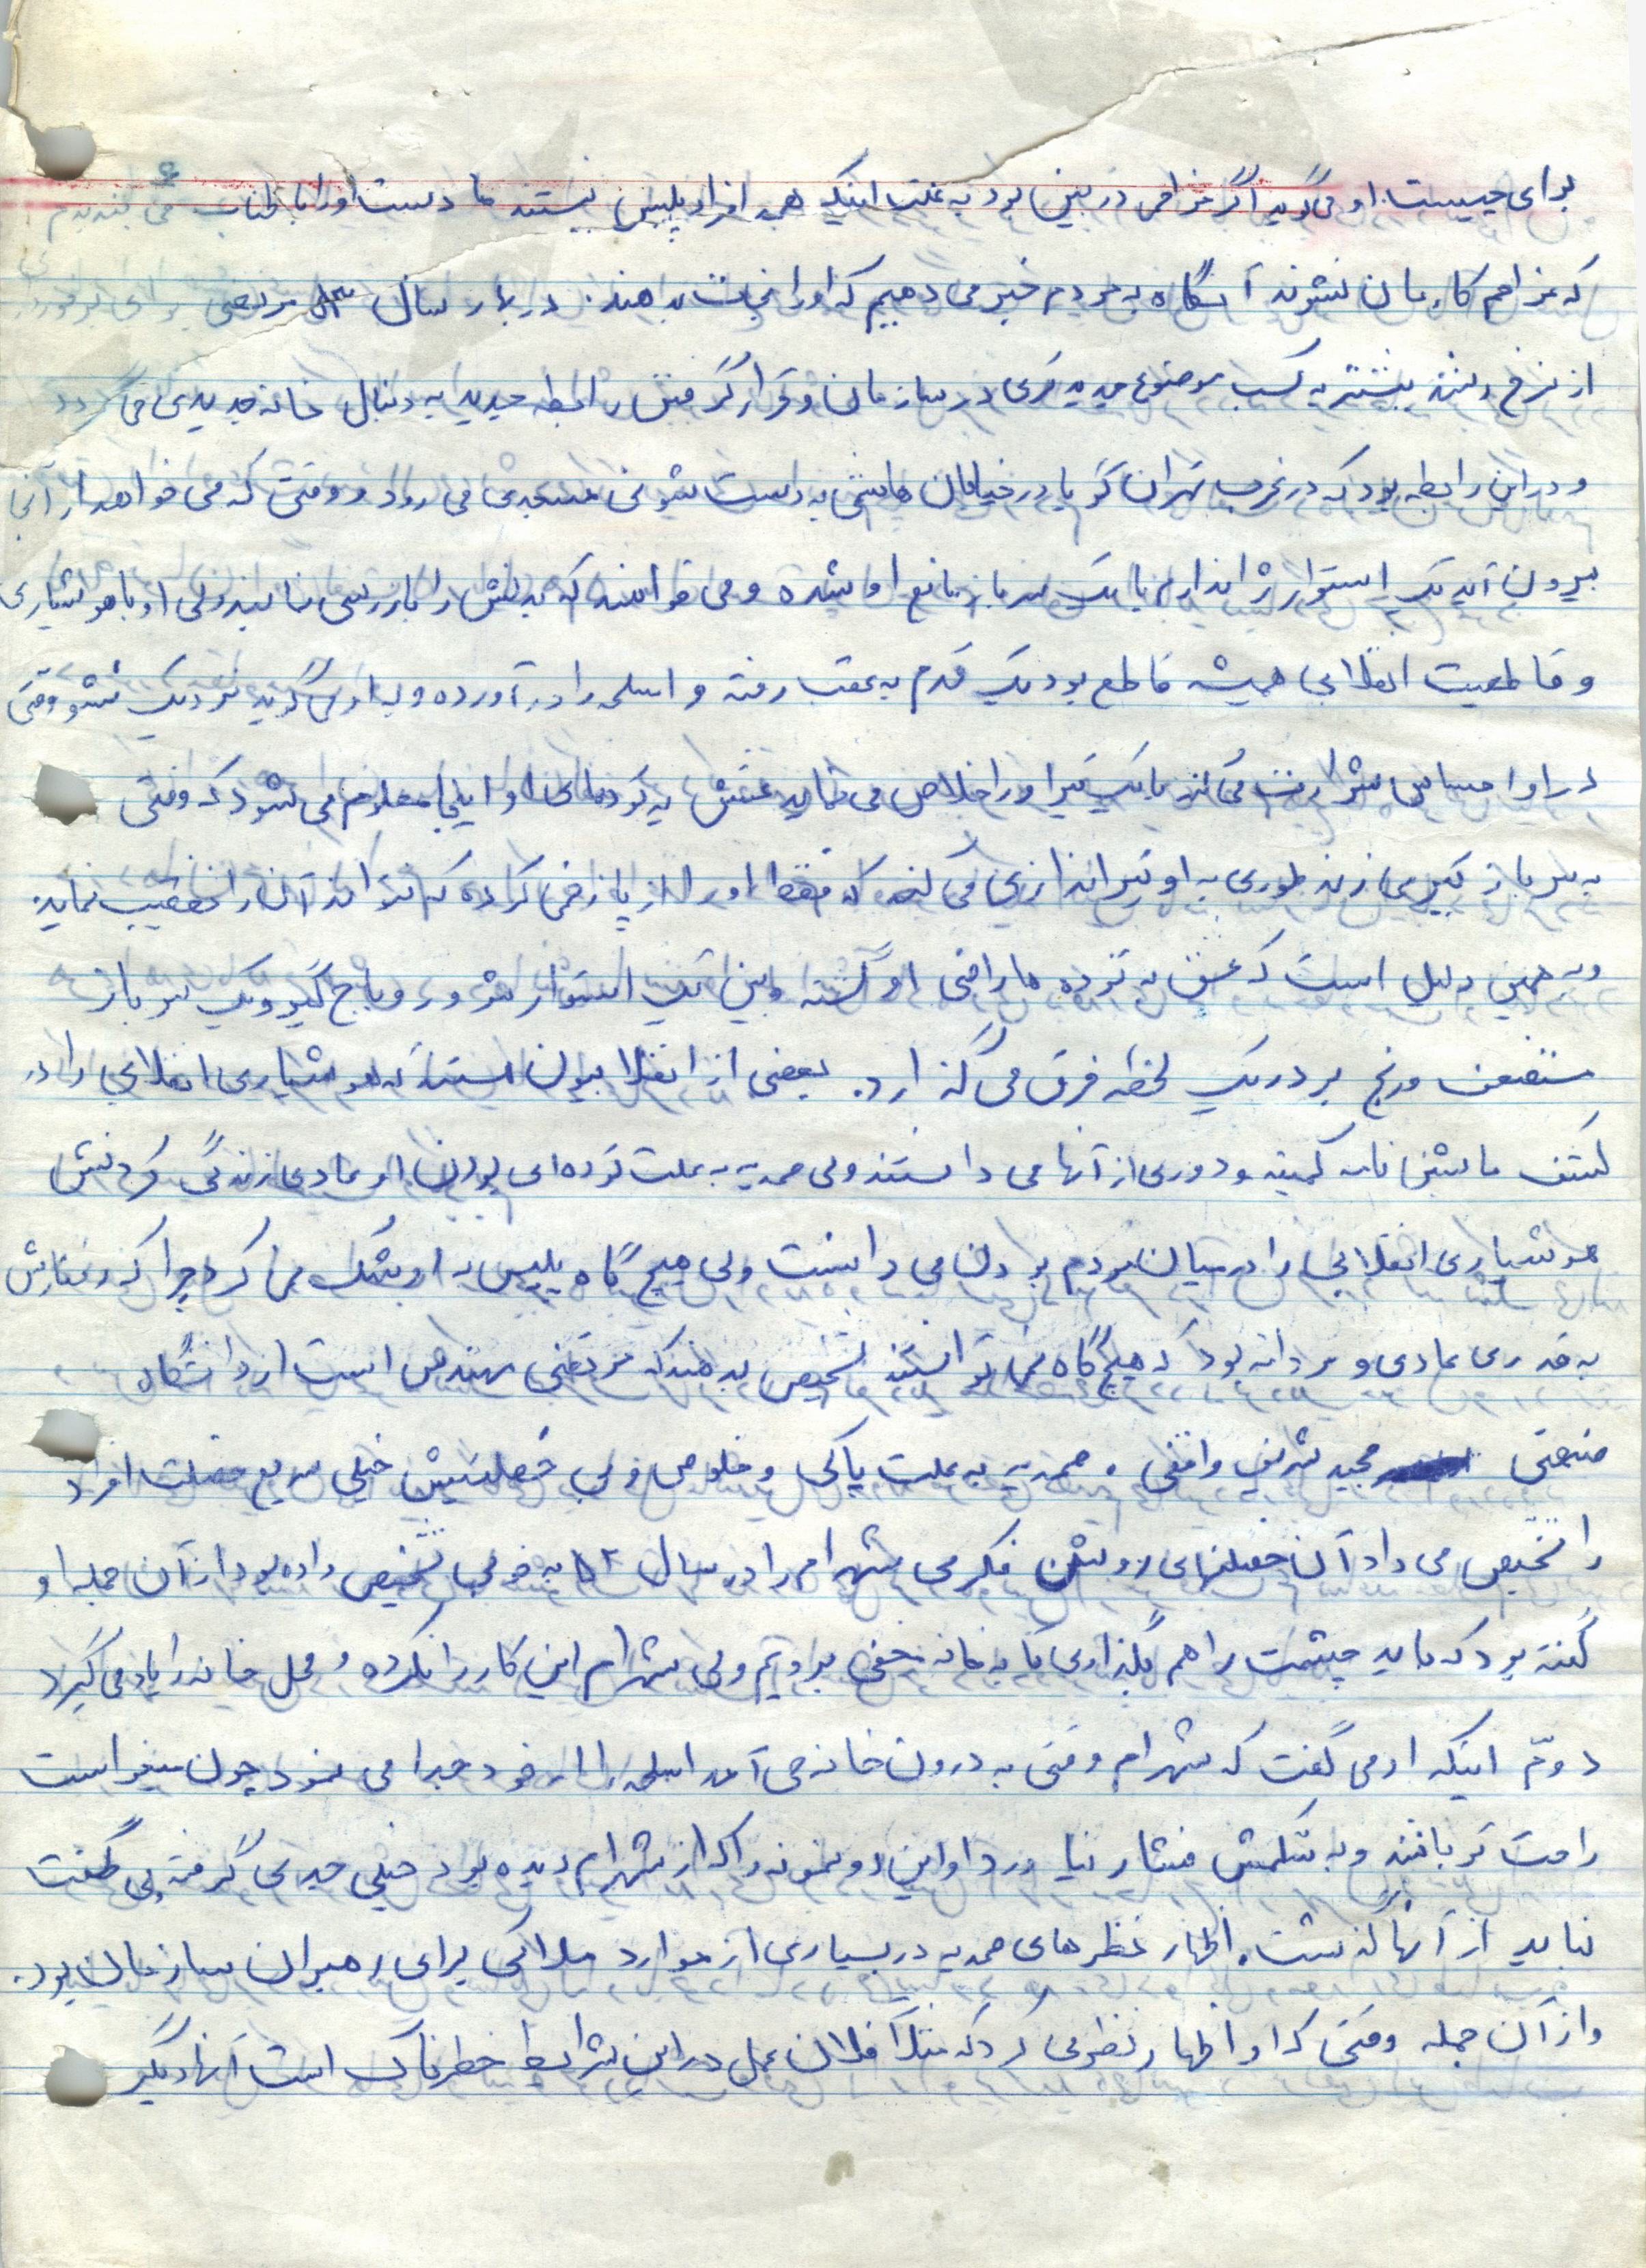 برای چیست. او می‌گوید اگر مزاحمی در بین بود به علت اینکه همه افراد پلیس نیستند ما دست او را با طناب می بندیم
که مزاحم کارمان نشوند آنگاه به مردم خبر می دهیم که او را نجات بدهند. در بهار سال مرتضی برای
از نزدیک به کسب موضوع جدیدتری در سازمان و قرار گرفتن رابطه جدید به دنبال خانه جدیدی می گردد
و در این رابطه بود که در غرب تهران گویا در خیابان هاشمی به دست شوئی مسجدی می رود و وقتی که می خواهد از آنجا
بیرون آید یک استوار ژاندارم با یک سرباز مانع او شده و می خواهند که بدنش را بازرسی نمایند ولی او با هوشیاری
و قاطعیت انقلابی همیشه قاطع بود یک قدم به عقب رفته و اسلحه را در آورده و به او می گوید نزدیک نشو وقتی
در او احساس شرارت می کند با یک تیر او را خلاص می نماید عشق به توده‌های او اینجا معلوم می شود که وقتی
به سرباز تیر می زند طوری به او تیراندازی می کند که فقط او را از پا زخمی کرده که نتواند آن را تعقیب نماید
و به همین دلیل است که عشق به توده ها راضی او گشته و بین یک استوار مزدور و باج گیر و یک سرباز
مستضعف و رنج بر در یک لحظه فرق می گذارد. بعضی از انقلابیون هستند که هوشیاری انقلابی را در
کشف ماشین نامه کمیته و دوری از آنها می دانستند ولی صمدیه به علت توده‌ای بودن او و عادی زندگی کردنش
هوشیاری انقلابی را در میان مردم بودن می دانست ولی هیچ گاه پلیس به او شک نمی کرد چرا که رفتارش
به قدری عادی و مردانه بود که هیچ گاه نمی توانستند تشخیص بدهند که مرتضی مهندس است از دانشگاه
صنعتی مجید شریف واقفی. صمدیه به علت پاکی و خلوص و بی خصلتیش خیلی سریع خصلت افراد
را تشخیص می داد آن خصلتهای روشن فکری شهرام را در سال ۵۲ به خوبی تشخیص داده بود از آن جمله او
گفته بود که باید چشمت را هم بگذاری تا به خانه مخفی برویم ولی شهرام این کار را نکرده و محل خانه را یاد می گیرد
دوّم اینکه او می گفت که شهرام وقتی به درون خانه می آمد اسلحه را از خود جدا می نمود چون میخواست
راحت تر باشد و به شکمش فشار نیاورد او این دو نمونه را که از شهرام دیده بود خیلی جدی گرفته می گفت
نباید از آنها گذشت. اظهار نظرهای صمدیه در بسیاری از موارد ملاکی برای رهبران سازمان بود.
و از آن جمله وقتی که او اظهار نظر می کرد که مثلاً فلان عمل در این شرایط خطرناک است آنها دیگر